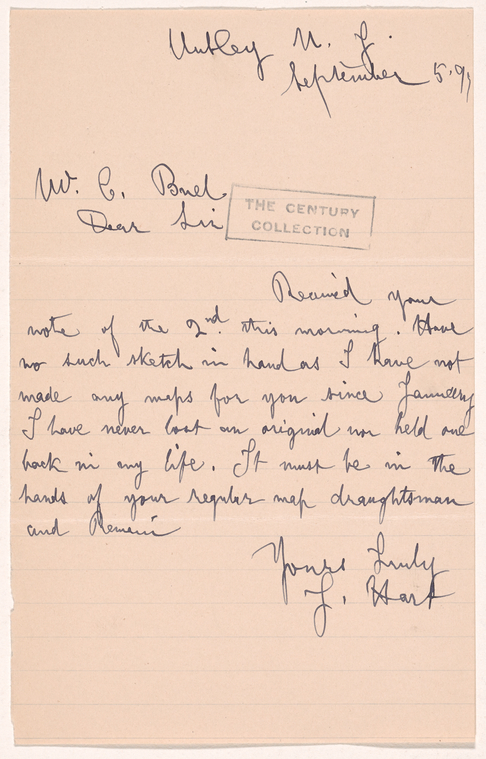 Nutley N. J.
September 5. 9
W. C. Buel
Dear Sir
THE CENTURY
COLLECTION
Received your
note of the 2nd this morning. Have
no such sketch in hand as I have not
made any maps for you since January
I have never lost an original nor held one
back in my life. It must be in the
hands of your regular map draughtsman
and Remain
Yours Truly
J. Hart